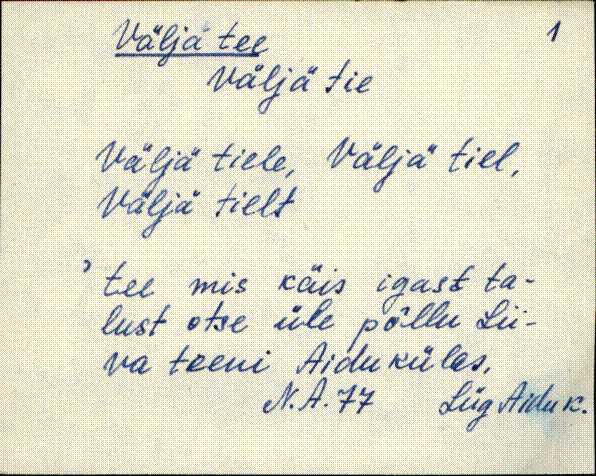 Väljä tee
1
Väljä tie
Väljä tiele, Väljä tiel,
Väljä tielt
' tee mis käis igast ta-
lust otse üle põllu Lii-
va teeni Aidu külas.
N.A. 77 Lüg Aidu k.